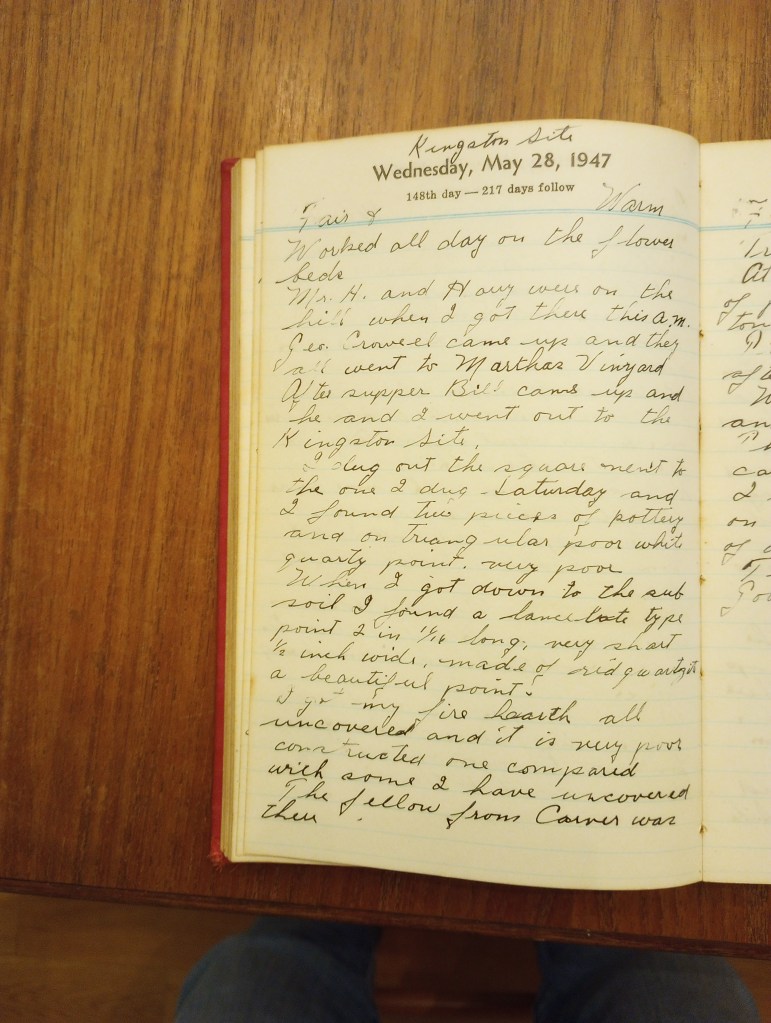 Kingston Site
Wednesday, May 28, 1947
148th day — 217 days follow
Fair & Warm
Worked all day on the flower
beds
Mr. H. and Harry were on the
hill when I got there this a.m.
Geo. Crowell came up and they
all went to Marthas Vinyard
After supper Bill came up and
he and I went out to the
Kingston Site.
I dug out the square next to
the one I dug Saturday and
I found two pieces of pottery
and on triangular poor white
quartz point. very poor
When I got down to the sub
soil I found a lancelate type
point 2 in 11/16 long, very short
1/2 inch wide, made of red quartzite
a beautiful point.
I got my fire hearth all
uncovered and it is very poor
constructed one compared
with some I have uncovered
The fellow from Carver was
there.
At
of
ton
of
an
ca
I
on
of